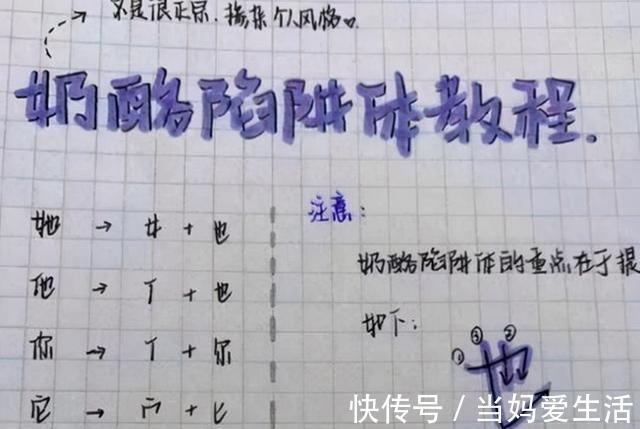 不是很正宗.掺杂个人风格。
奶酪陷阱体教程.
她 → 女 + 也
他 → 亻 + 也
你 → 亻 + 尔
它 → 宀 + 匕
注意:
奶酪陷阱体的重点在于提
如下:
① ③ ②
也
快传号 / 当妈爱生活